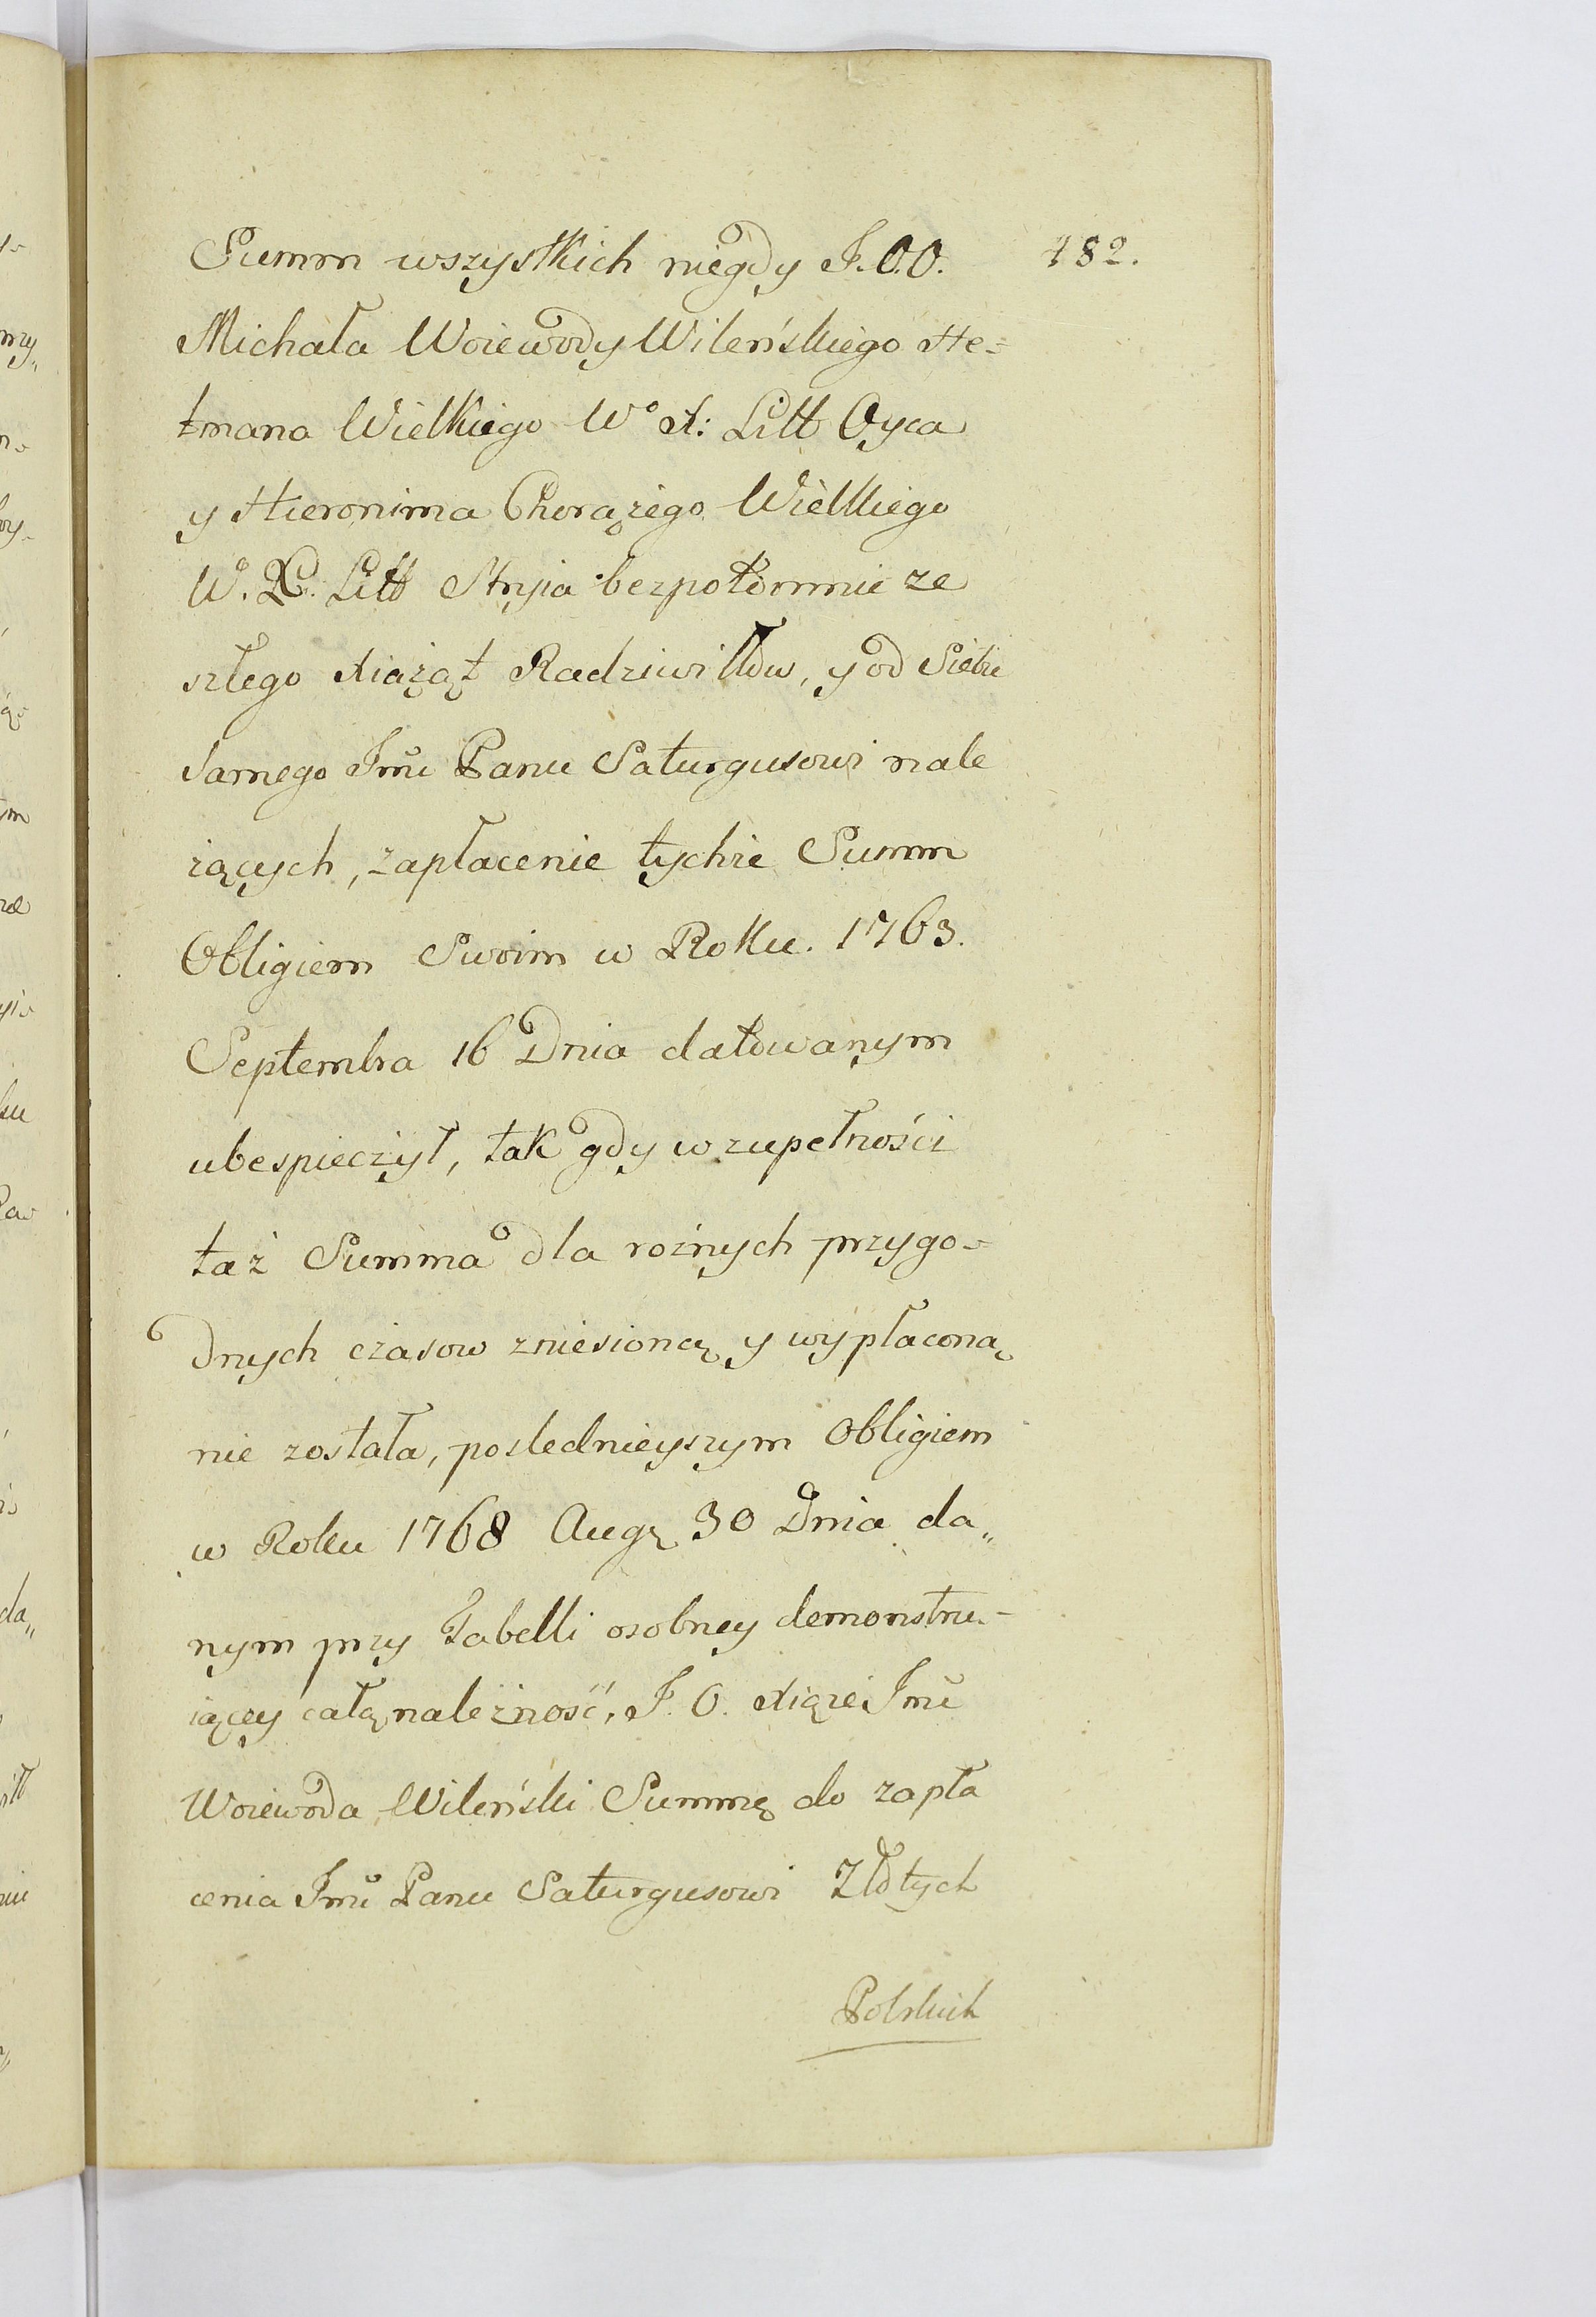 Summ wszystkich niegdy J.O.O. 182.
Michała Woiewody Wileńskiego He=
tmana Wielkiego Wº X: Litt Oyca
y Hieronima Chorążego Wielkiego
W. X. Litt Stryia bezpotomnie ze
szłego Xiążąt Radziwiłłow, y od Siebie
samego Jmū Panu Saturgusowi nale
żących, zapłacenie tychże Summ
Obligiem Swoim w Roku. 1763.
Septembra 16 Dnia datowanym
ubespieczył, tak gdy w zupełności
taż Summa dla rożnych przygo-
dnych czasow zniesioną y wypłaconą
nie została, poslednieyszym Obligiem
w Roku 1768 Augę 30 Dnia da„
nym przy Tabelli osobney demonstru-
iącey całą należność, J. O. Xiąże Jmć
Woiewoda Wileński Summę do zapła
cenia Jmū Panu Saturgusowi Złotych
Polskich